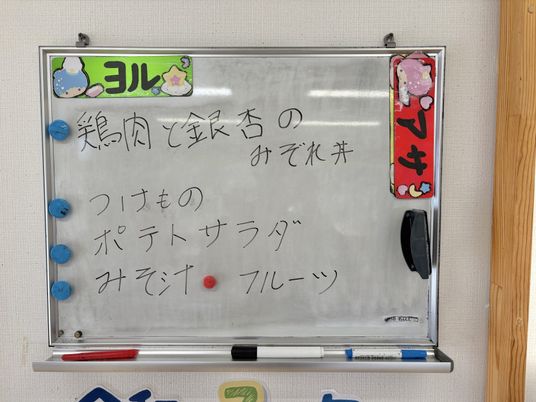 ヨル
アサ
鶏肉と銀杏の
みぞれ丼
つけもの
ポテトサラダ
みそ汁・フルーツ